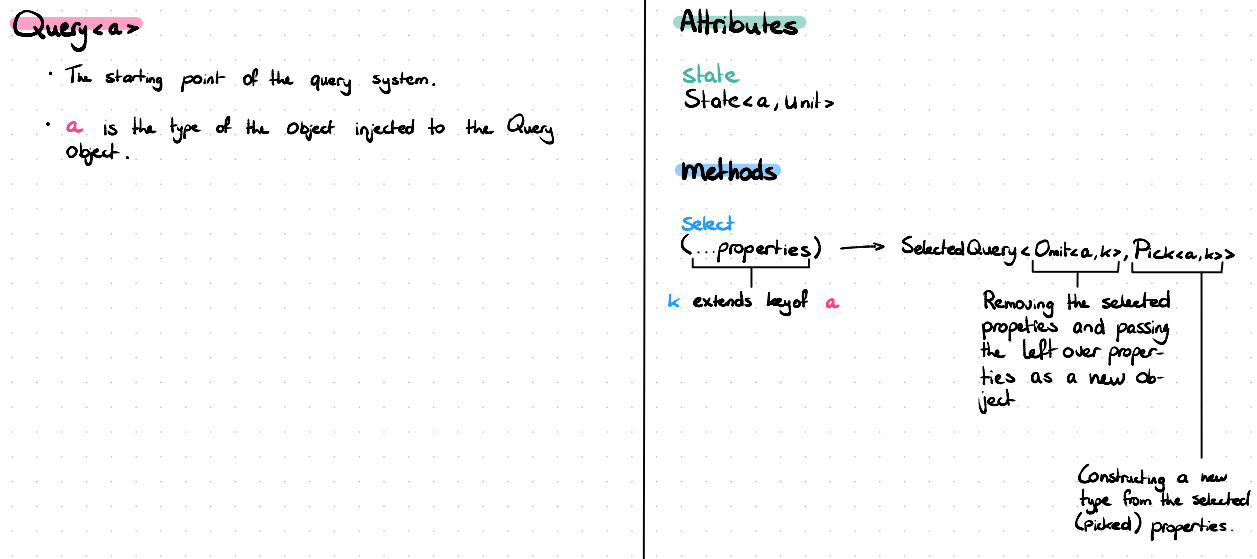 Query<a>
· The starting point of the query system.
· a is the type of the object injected to the Query
object.
Attributes
State
State<a, Unit>
Methods
Select
(...properties) → SelectedQuery<Omit<a,k>, Pick<a,k>>
k extends keyof a
Removing the selected
propeties and passing
the left over proper-
ties as a new ob-
ject
Constructing a new
type from the selected
(picked) properties.